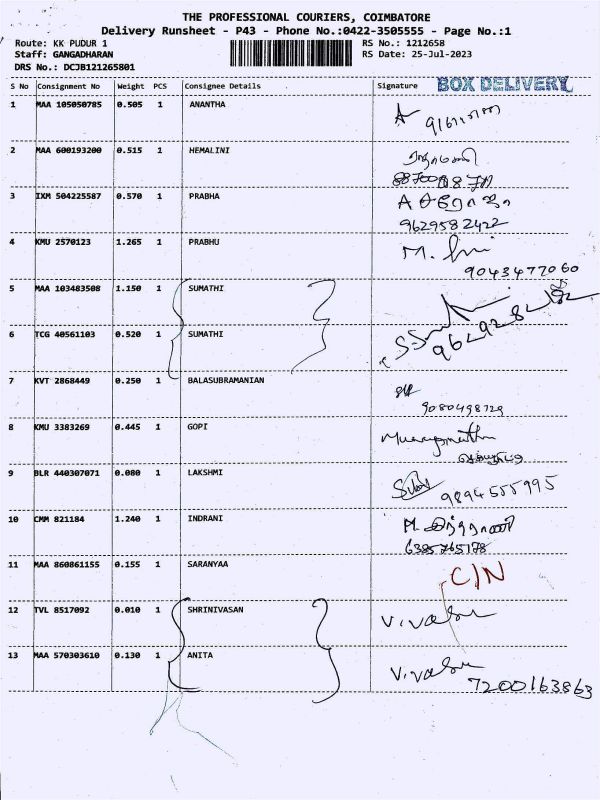 THE PROFESSIONAL COURIERS, COIMBATORE
Delivery Runsheet - P43 - Phone No.:0422-3505555 - Page No.:1
Route: KK PUDUR 1 RS No.: 1212658
Staff: GANGADHARAN RS Date: 25-Jul-2023
DRS No.: DCJB121265801
S No Consignment No Weight PCS Consignee Details Signature BOX DELIVERY
1 MAA 105050785 0.505 1 ANANTHA
2 MAA 600193200 0.515 1 HEMALINI
3 IXM 504225587 0.570 1 PRABHA
9629582422
4 KMU 2570123 1.265 1 PRABHU M.
9043477060
5 MAA 103483508 1.150 1 SUMATHI
6 TCG 40561103 0.520 1 SUMATHI
7 KVT 2868449 0.250 1 BALASUBRAMANIAN
9080498729
8 KMU 3383269 0.445 1 GOPI
9 BLR 440307071 0.080 1 LAKSHMI
9894555995
10 CMM 821184 1.240 1 INDRANI
6385765178
11 MAA 860861155 0.155 1 SARANYAA C/N
12 TVL 8517092 0.010 1 SHRINIVASAN
13 MAA 570303610 0.130 1 ANITA
7200163863